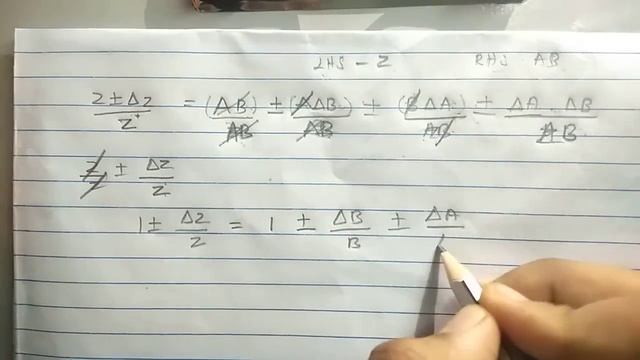 LHS - Z RHS AB
Z ± ΔZ / Z = (AB) / AB ± (AΔB) / AB ± (BΔA) / AB ± ΔA . ΔB / AB
Z / Z ± ΔZ / Z
1 ± ΔZ / Z = 1 ± ΔB / B ± ΔA /